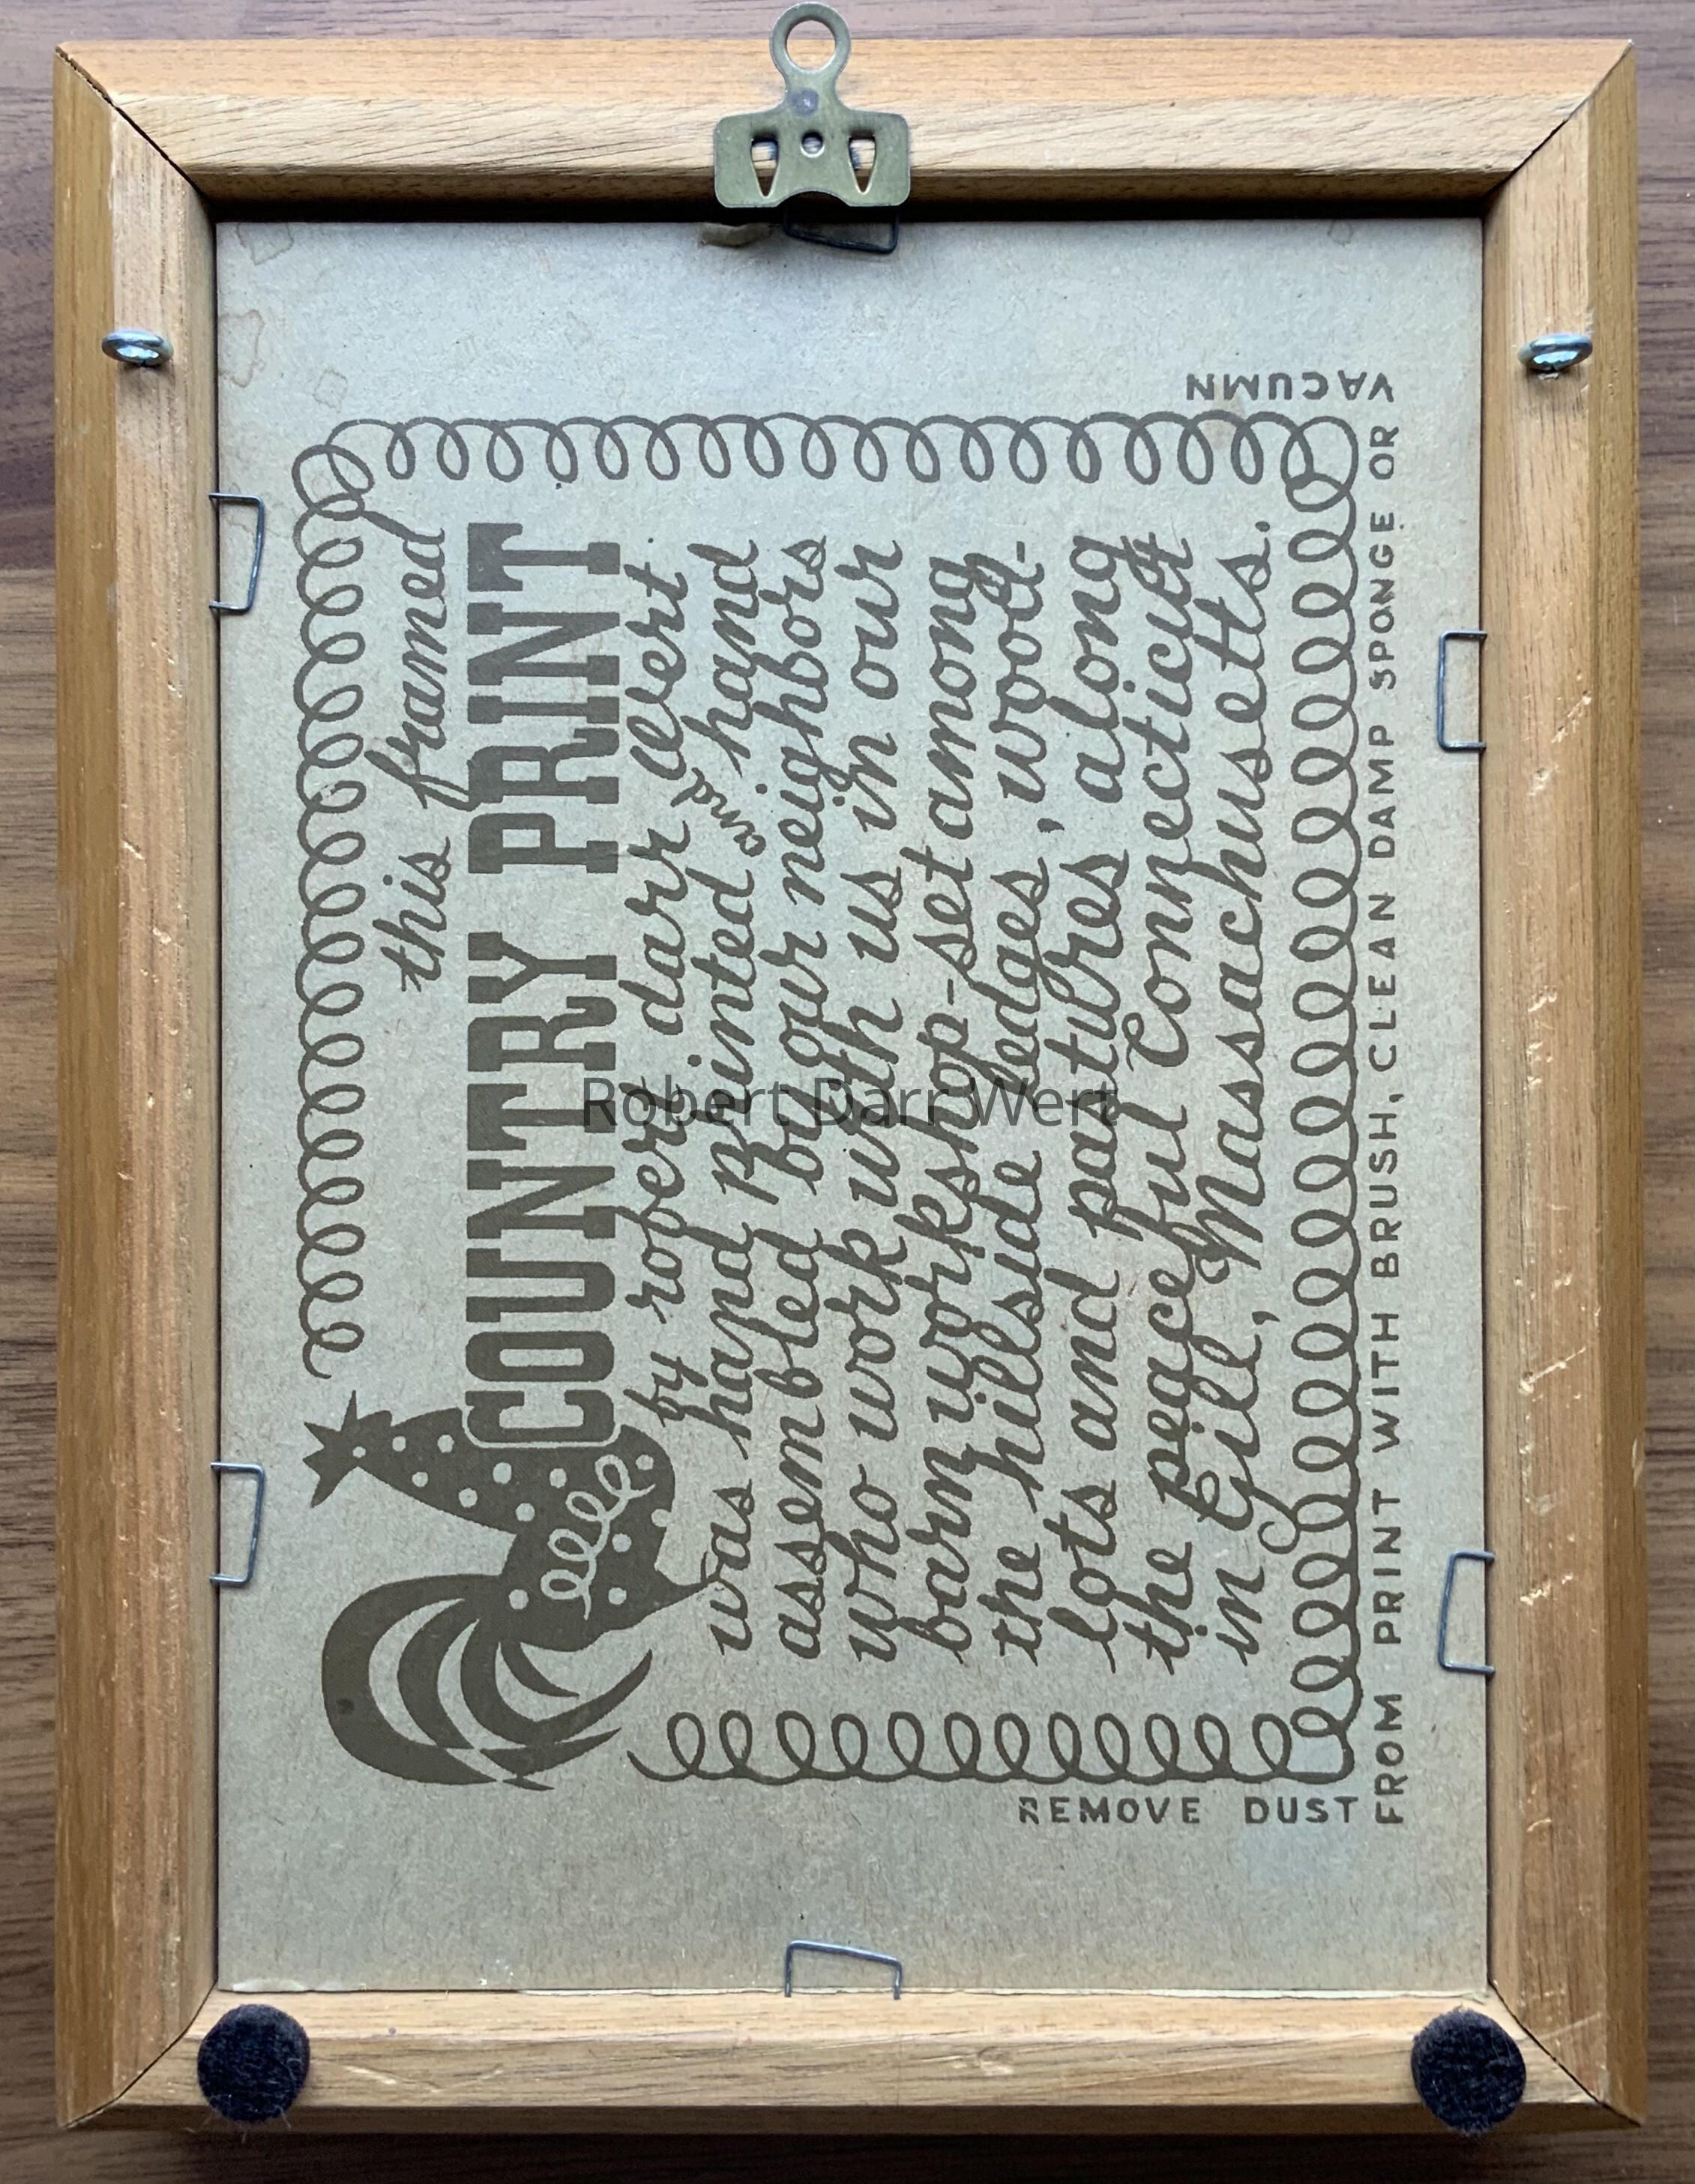 this framed
COUNTRY PRINT
by robert darr wert
was hand printed and hand
assembled by our neighbors
who work with us in our
barn workshop-set among
the hillside ledges, wood-
lots and pastures, along
the peaceful Connecticutt
in Gill, Massachusetts.
REMOVE DUST
FROM PRINT WITH BRUSH, CLEAN DAMP SPONGE OR
VACUMN
Robert Darr Wert